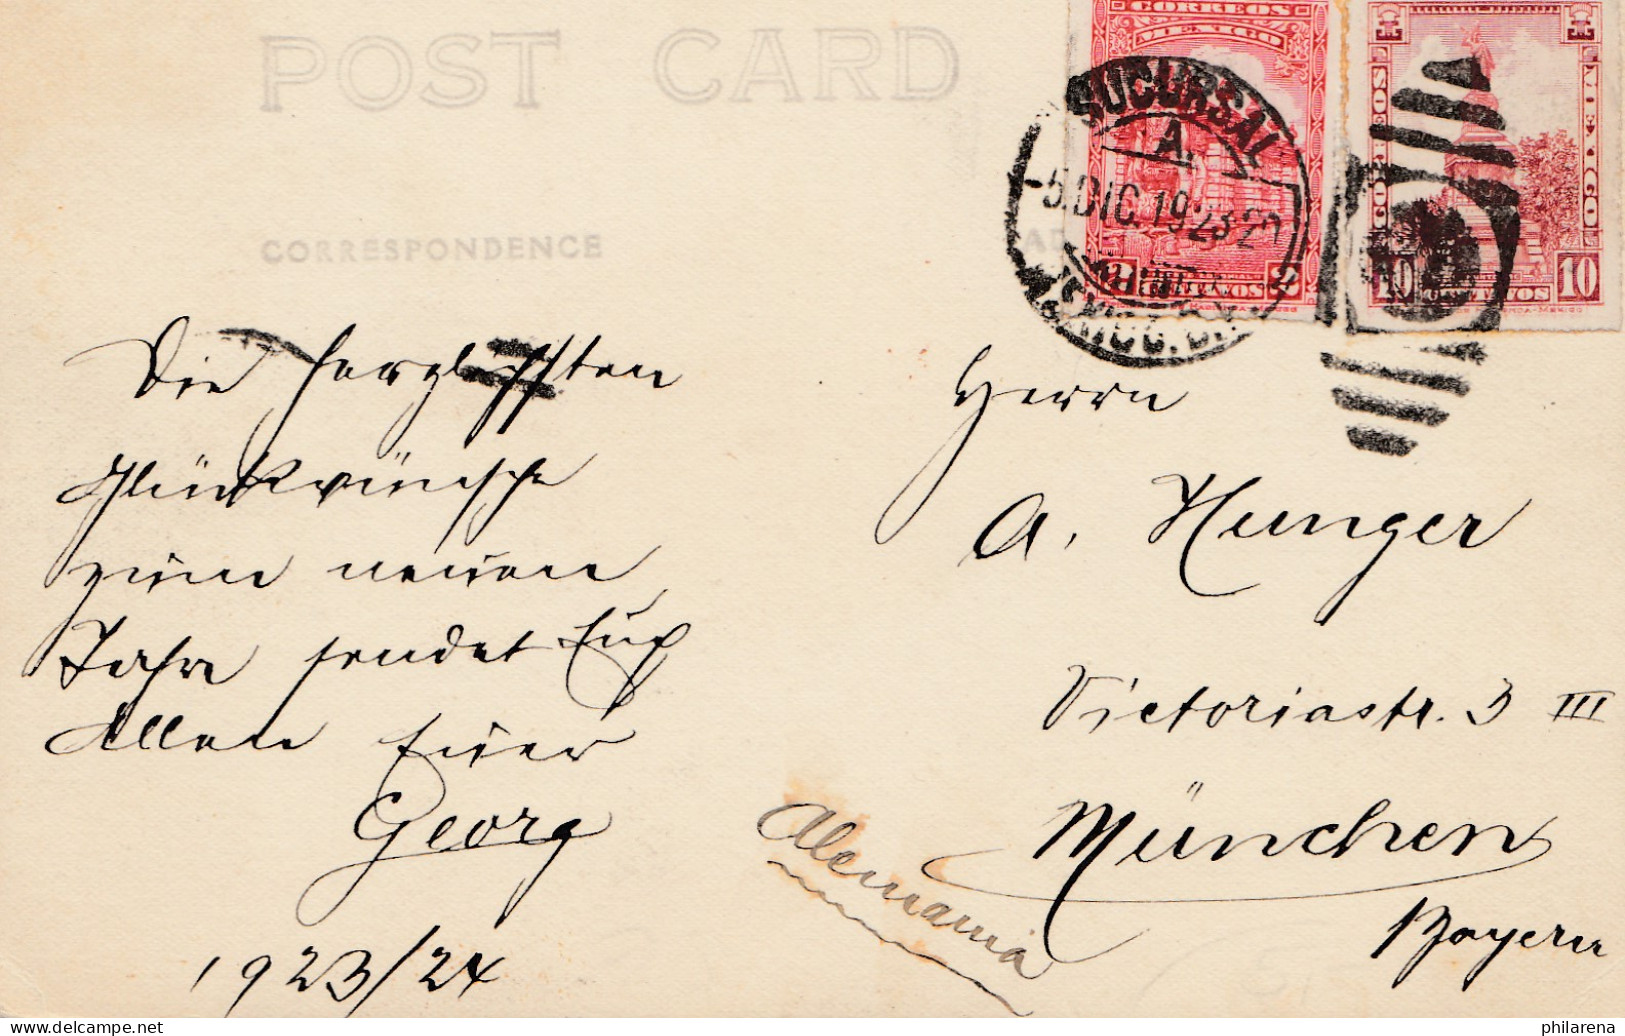 POST CARD
CORREOS
MEXICO
2 CENTAVOS 2
CORREOS
MEXICO
10 CENTAVOS 10
SUCURSAL
A.
-5 DIC. 1923
CORRESPONDENCE
Die herzlichsten
Glückwünsche
zum neuen
Jahre sendet Euch
Allen Euer
Georg
1923/24
Herrn
A. Hunger
Victoriastr. 3 III
München
Bayern
Alemania
delcampe.net
philarena